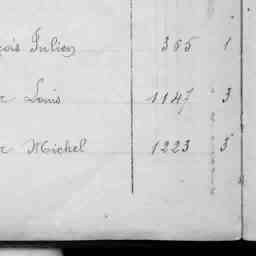 çois Julien 365 1
c Louis 1147 3
c Michel 1223 3